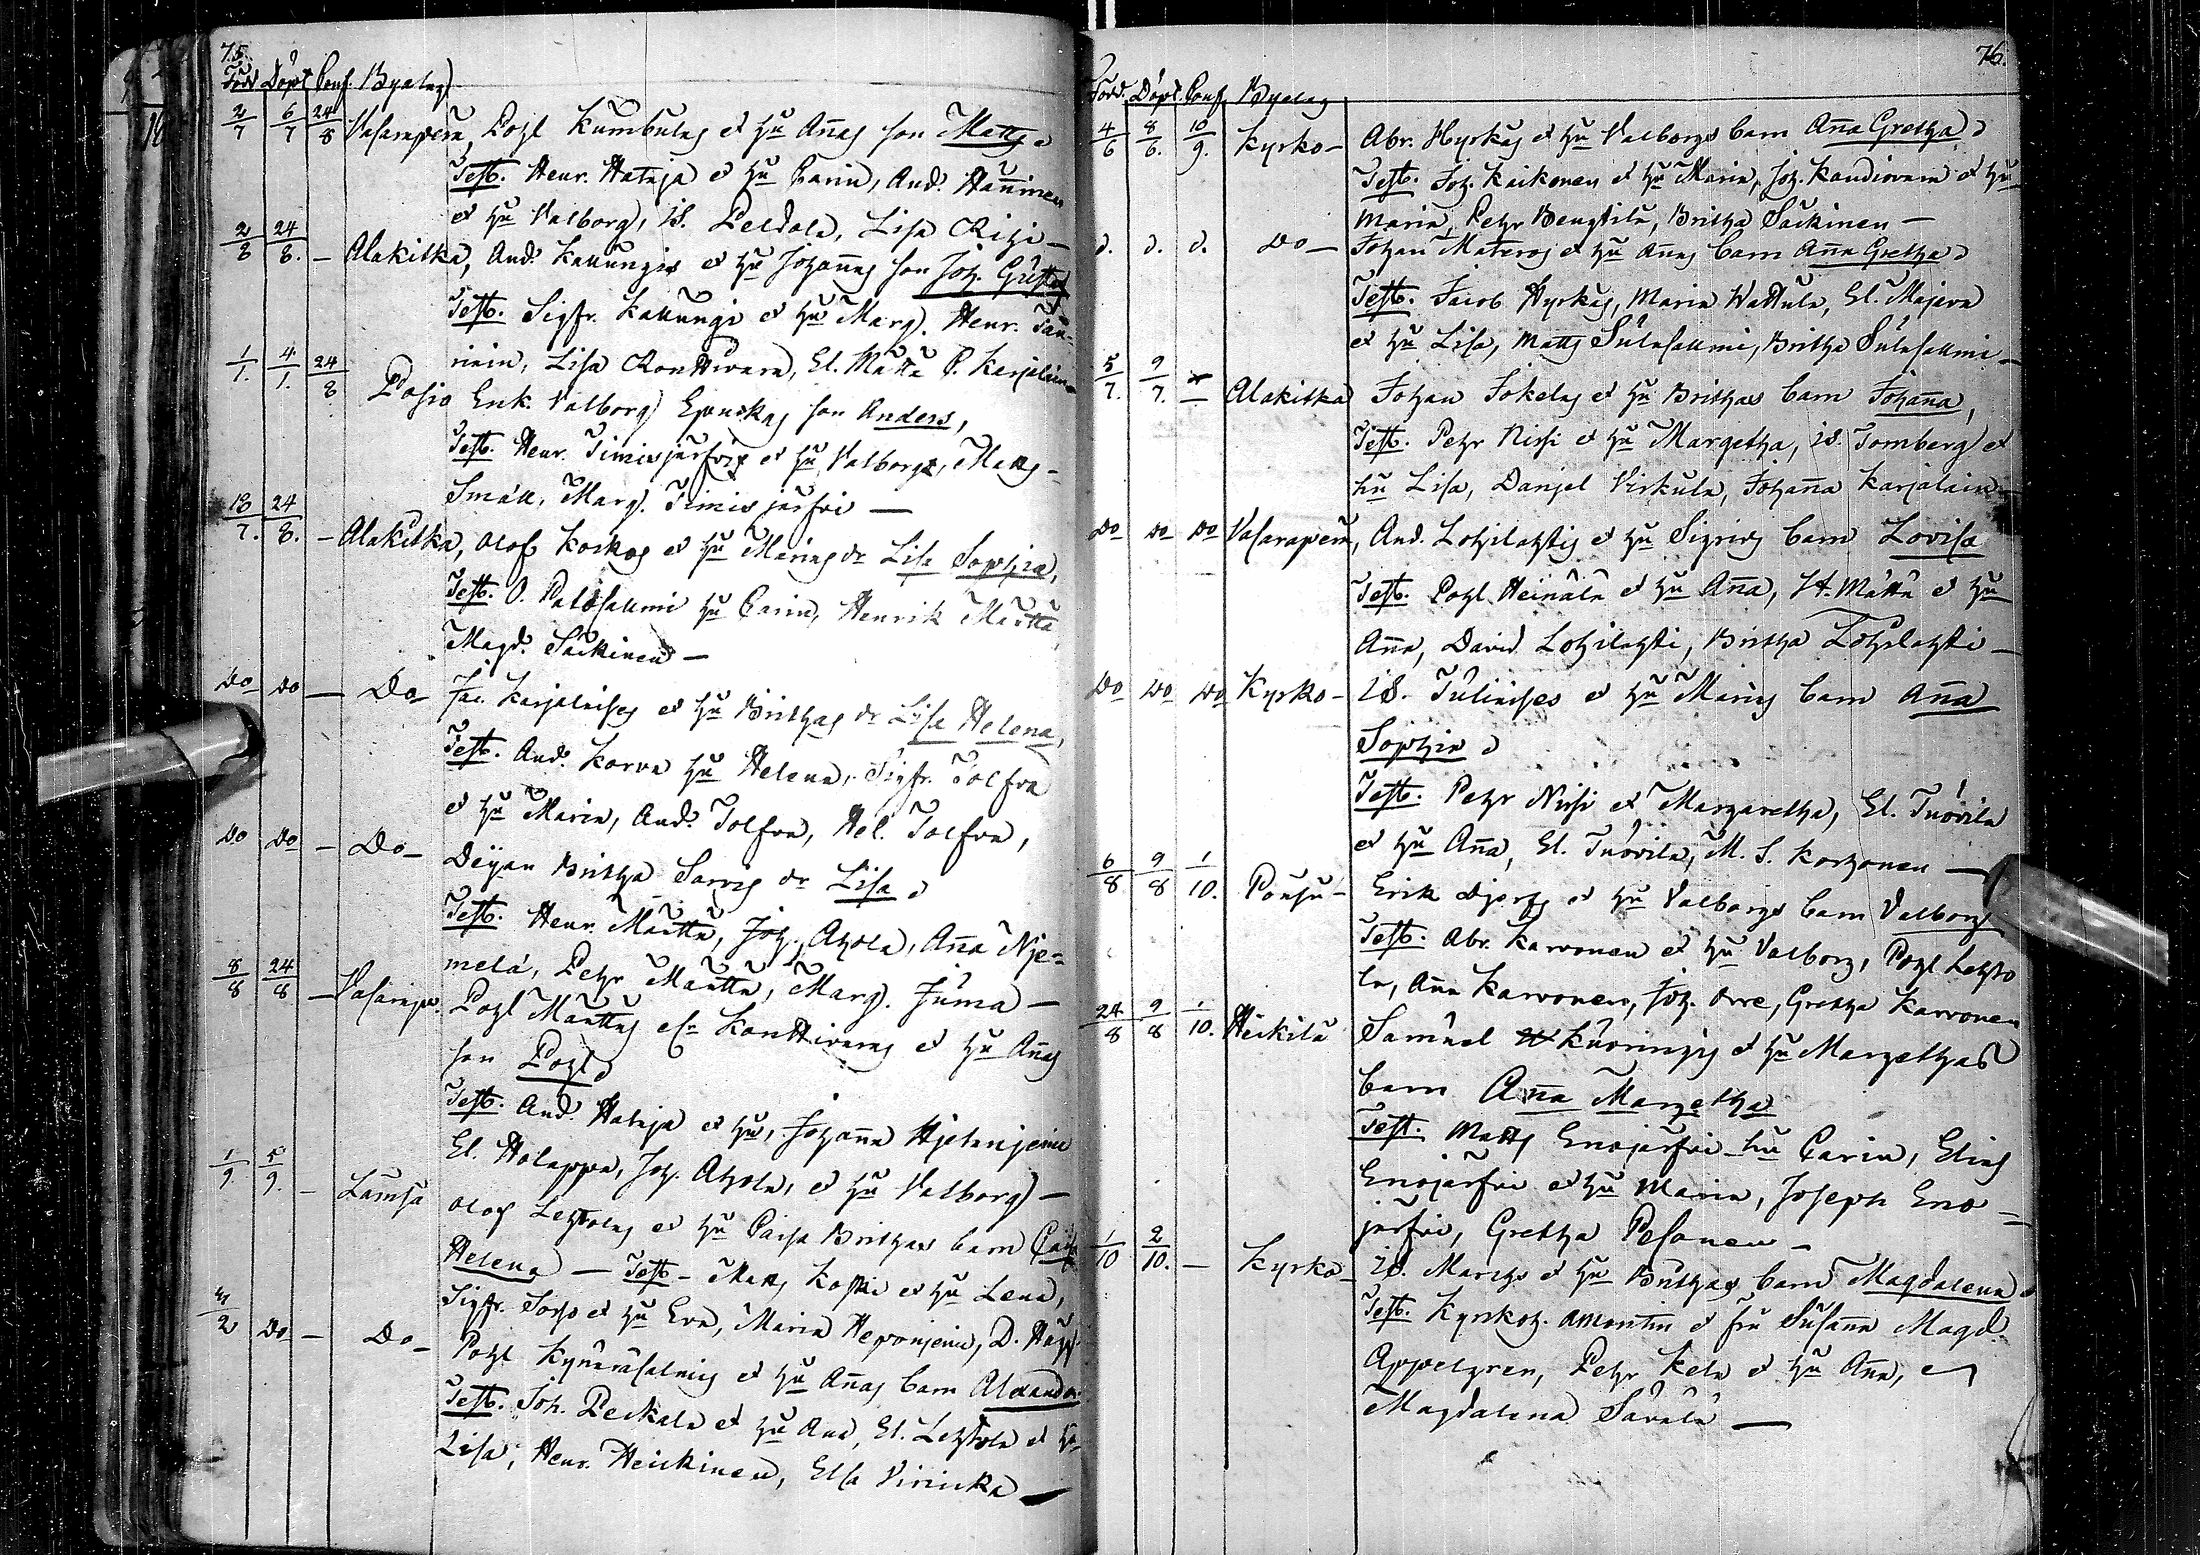 75.
Född Döpt Conf. Byalag
2/7 6/7 24/8 Vasaraperä, Pohl Kumbulas et hu Annas son Matts
Test. Henr. Hataja et hu Carin, And. Hänninen
et hu Valborg, Is. Peldola, Lisa
2/8 24/8. — Alakitka, And. Kallungis et hu Johannas son Joh. Gustaf
Test. Sigfr. Kallungi et hu Marg. Henr. Tan-
ninin, Lisa Konttivara, El. Mätta P. Karjalain
1/1. 4/1. 24/8 Posio Enk. Valborg son Anders,
Test. Henr. Timisjärfvis et hu Valborg, Matts
Smäll, Marg. Timisjärfvi —
18/7. 24/8. — Alakitka, Olof Koskos et hu Marias dr Lisa Sophia,
Test. O. Palosalmi hu Carin, Henrik Määttä
Magd. Säckinen —
Do Do — Do Jac. Karjalaises et hu Brithas dr Lisa Helena,
Test. And. Korva hu Helena, Sigfr. Tolfva
et hu Maria, And. Tolfva, Hel. Tolfva,
Do Do — Do — Pigan Britha Sarvis dr Lisa
Test. Henr. Määttä, Joh. Ahola, Anna Nje-
melä, Petr Määttä, Marg. Juma —
8/8 24/8 — Vasarape. Pohl Määttas Konttivaras et hu Annas
son Pohl
Test. And. Hataja et hu, Johanna Hjetanjemi
El. Holappa, Joh. Ahola, et hu Valborg —
1/9. 5/9. — Lämsä Olof Lehtolas et hu Caisa Brithas barn Caisa
Helena — Test — Matts Koski et hu Lena,
Sigfr. et hu Eva, Maria Heponjemi, D.
Do — Do — Pohl Kynäräsalmis et hu Annas barn Alexander
Test. Joh. Peckala et hu Ana, El. Lehtola et hu
Lisa, Henr. Heickinen, Elsa Virickä —
76.
Född. Döpt. Conf. Byalag
4/6 8/6. 10/9. Kyrko — Abr. Hyrkäs et hu Valborgs barn Anna Gretha
Test. Joh. Kaikonen et hu Maria, Joh. Kandiovara et hu
Maria, Petr Bengtilä, Britha Säckinen —
d. d. d. Do — Johan Materos et hu Annas barn Anna Gretha
Test. Jacob Hyrkäs, Maria Wattula, El. Majava
et hu Lisa, Matts Sulasallmi, Britha Sulasallmi —
5/7. 9/7. — Alakitka Johan Jokelas et hu Brithas barn Johanna,
Test. Petr Nissi et hu Margetha, Is. Tornberg et
hu Lisa, Danjel Virkula, Johanna Karjalain
Do Do Do Vasaraperä, And. Lohilahtis et hu Sigrids barn Lovisa
Test. Pohl Heinälä et hu Anna, H. Mättä et hu
Anna, David Lohilahti, Britha Lohilahti —
Do Do Do Kyrko — Is. Tulinises et hu Marias barn Anna
Sophia
Test. Petr Nissi et Margaretha, El. Tuovila
et hu Anna, El. Tuovila, M. S. Korhonen —
6/8 9/8 1/10. Posju — Erik Djerfs et hu Valborgs barn Valborg
Test. Abr. Karvonen et hu Valborg, Pohl Lehto
la, Ann Karvonen, Joh. Orre, Gretha Karvonen
24/8 9/8 1/10. Heikilä Samuel Kuorinkis et hu Margethas
barn Anna Margetha
Test. Matts Enojärfvi hu Carin, Elias
Enojärfvi et hu Maria, Joseph Eno-
järfvi, Gretha Pesonen —
1/10 2/10. — Kyrko — Is. Marcks et hu Brithas barn Magdalena
Test. Kyrkoh. Amontin et fru Susanna Magd.
Appelgren, Petr Kela et hu Ann,
Magdalena Säväla —